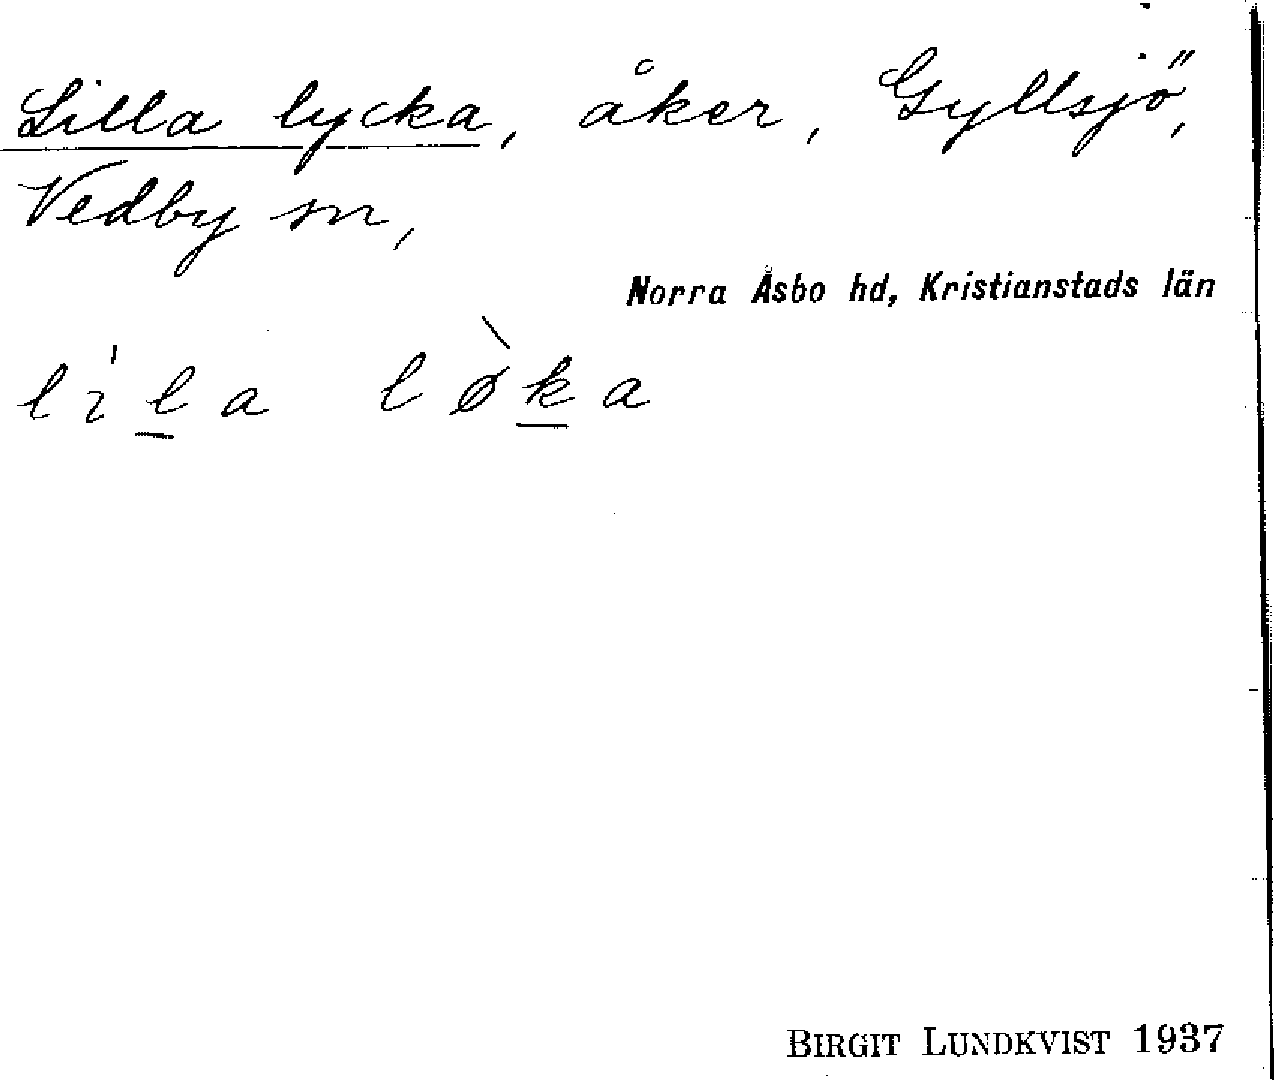 Lilla lycka, åker, Gyllsjö,
Vedby sn,
Norra Åsbo hd, Kristianstads län
lila løka
BIRGIT LUNDKVIST 1937